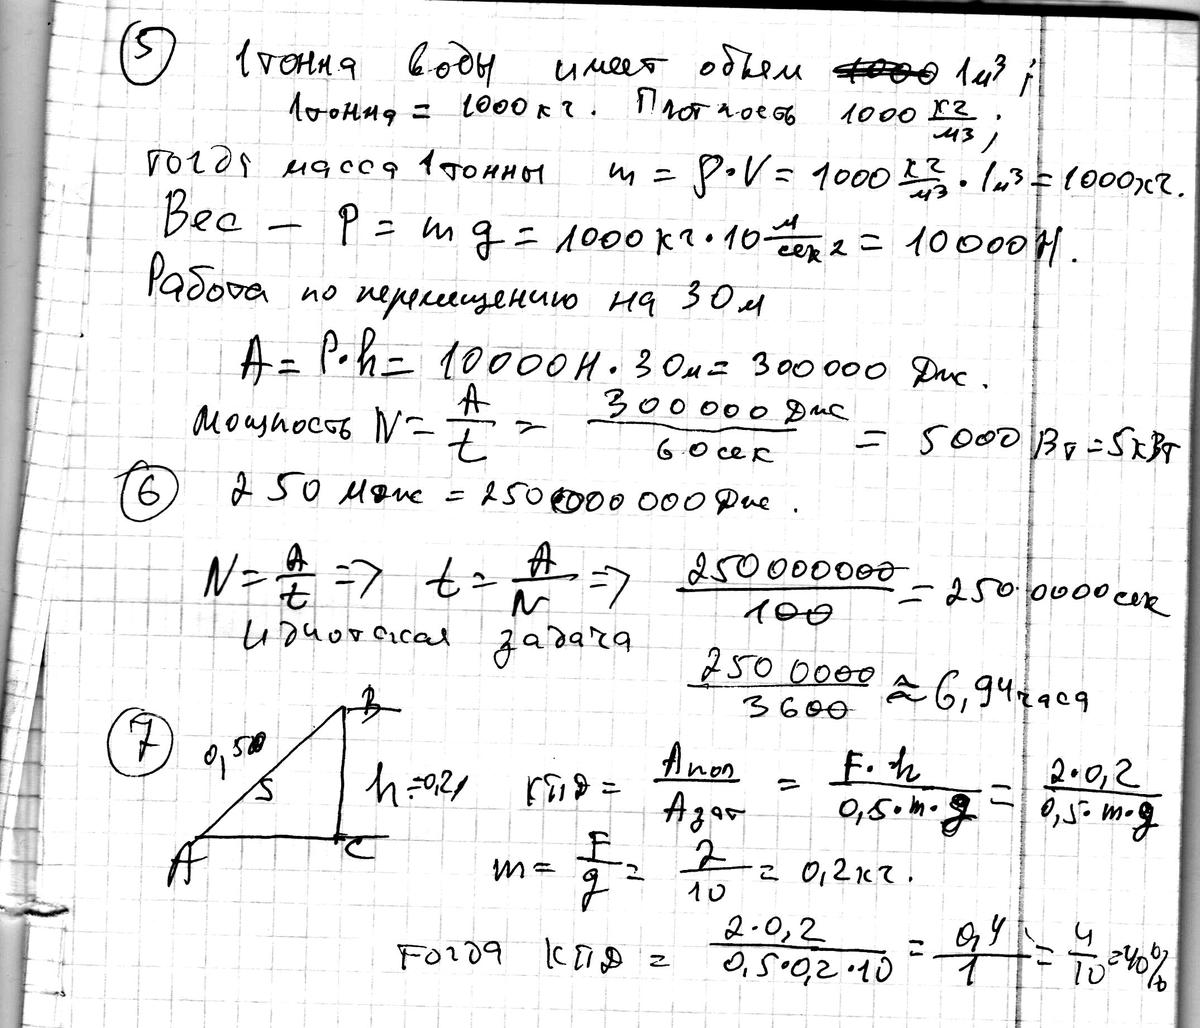 5 1 тонна воды имеет объем 1000 1м³;
1тонна = 1000 кг. Плотность 1000 кг/м3;
тогда масса 1 тонны m = ρ·V = 1000 кг/м³ · 1м³ = 1000кг.
Вес – P = mg = 1000кг·10 м/сек2 = 10000Н.
Работа по перемещению на 30м
A = P·h = 10000Н·30м = 300000 Дж.
мощность N = A/t = 300000 Дж/60 сек = 5000 Вт = 5кВт
6 250 Мдж = 250000000 Дж.
N = A/t => t = A/N => 250000000/100 = 2500000сек
идиотская задача
2500000/3600 ≈ 6,94часа
7 0,5 S A B C h=0,2
КПД = Апол/Азат = F·h/0,5·m·g = 2·0,2/0,5·m·g
m = F/g = 2/10 = 0,2кг.
тогда КПД = 2·0,2/0,5·0,2·10 = 0,4/1 = 4/10 = 40%